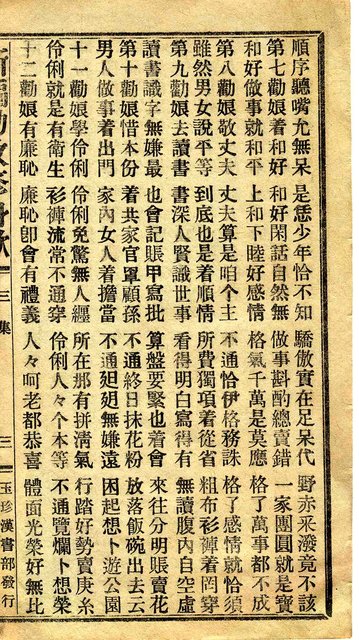 順序聽嘴尢無呆　是恁少年恰不知　驕傲實在足呆代　野赤釆潑竟不該
第七勸娘着和好　和好閑話自然無　做事斟酌總賣錯　一家團圓就是寶
和好做事就和平　上和下睦好感情　格氣千萬是莫應　格了萬事都不成
第八勸娘敬丈夫　丈夫算是咱个主　不通恰伊格務誅　格了感情就恰須
雖然男女說平等　到底也是着順情　所費獨項着從省　粗布衫褲着罔穿
第九勸娘去讀書　書深人賢識世事　看得明白寫得有　無讀腹內自空虛
讀書識字無嫌最　也會記賬甲寫批　算盤要緊也着會　來往分明賬賣花
第十勸娘惜本份　着共家官罩顧孫　不通終日抹花粉　放落飯碗出去云
男人做事着出門　家內女人着擔當　不通廻廻無嫌遠　困起想卜遊公園
十一勸娘學伶俐　伶俐免驚無人纏　所在那有拼淸氣　行踏好勢賣庚糸
伶俐就是有衛生　衫褲流常不通穿　伶俐人々个本等　不通覽爛卜想榮
十二勸娘有廉恥　廉恥卽會有禮義　人々呵老都恭喜　體面光榮好無比
三集　三　玉珍漢書部發行